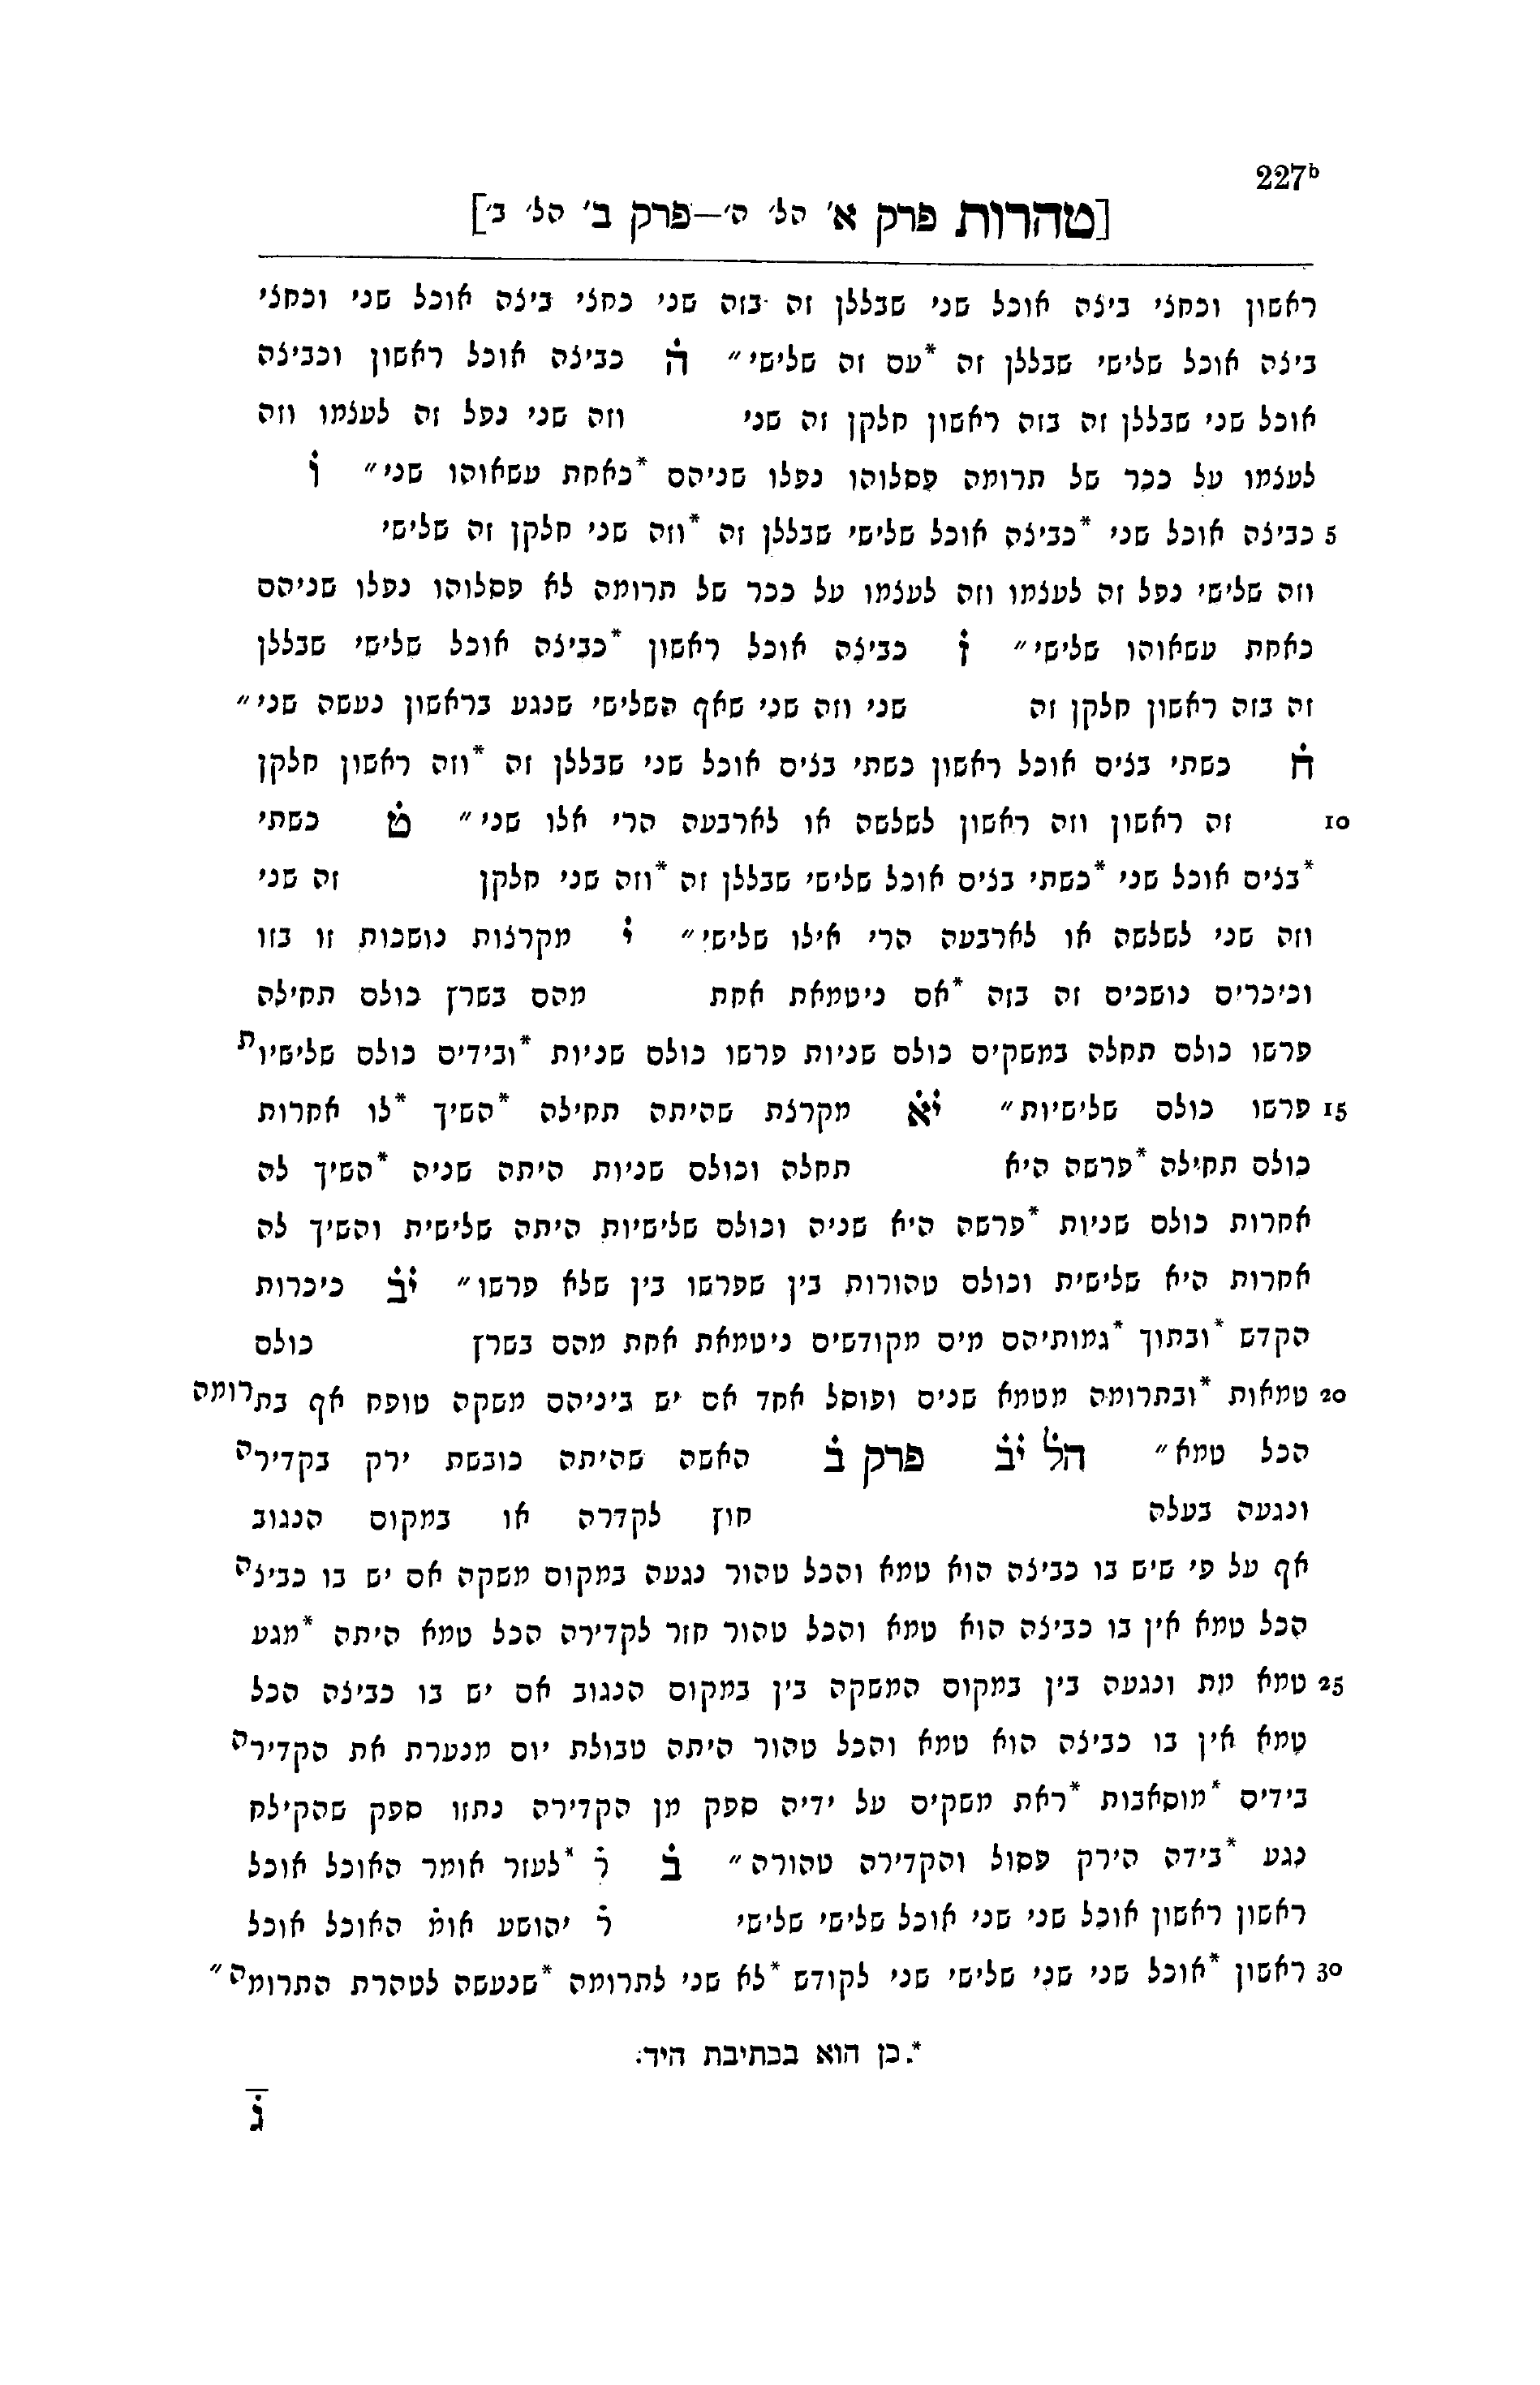 227b
[טהרות פרק א' הל' ה'—פרק ב' הל' ב']
ראשון וכחצי ביצה אוכל שני שבללן זה בזה שני כחצי ביצה אוכל שני וכחצי
ביצה אוכל שלישי שבללן זה *עם זה שלישי״ ה̇ כביצה אוכל ראשון וכביצה
אוכל שני שבללן זה בזה ראשון חלקן זה שני וזה שני נפל זה לעצמו וזה
לעצמו על ככר של תרומה פסלוהו נפלו שניהם *כאחת עשאוהו שני״ ו̇
5 כביצה אוכל שני *כביצה אוכל שלישי שבללן זה *וזה שני חלקן זה שלישי
וזה שלישי נפל זה לעצמו וזה לעצמו על ככר של תרומה לא פסלוהו נפלו שניהם
כאחת עשאוהו שלישי״ ז̇ כביצה אוכל ראשון *כביצה אוכל שלישי שבללן
זה בזה ראשון חלקן זה שני וזה שני שאף השלישי שנגע בראשון נעשה שני״
ח̇ כשתי בצים אוכל ראשון כשתי בצים אוכל שני שבללן זה *וזה ראשון חלקן
10 זה ראשון וזה ראשון לשלשה או לארבעה הרי אלו שני״ ט̇ כשתי
*בצים אוכל שני *כשתי בצים אוכל שלישי שבללן זה *וזה שני חלקן זה שני
וזה שני לשלשה או לארבעה הרי אילו שלישי״ י̇ מקרצות נושכות זו בזו
וכיכרים נושכים זה בזה *אם ניטמאת אחת מהם בשרץ כולם תחילה
פרשו כולם תחלה במשקים כולם שניות פרשו כולם שניות *ובידים כולם שלישיות
15 פרשו כולם שלישיות״ י̇א̇ מקרצת שהיתה תחילה *השיך *לו אחרות
כולם תחילה *פרשה היא תחלה וכולם שניות היתה שניה *השיך לה
אחרות כולם שניות *פרשה היא שניה וכולם שלישיות היתה שלישית והשיך לה
אחרות היא שלישית וכולם טהורות בין שפרשו בין שלא פרשו״ י̇ב̇ כיכרות
הקדש *ובתוך *גמותיהם מים מקודשים ניטמאת אחת מהם בשרץ כולם
20 טמאות *ובתרומה מטמא שנים ופוסל אחד אם יש ביניהם משקה טופח אף בתרומה
הכל טמא״ הל̇ י̇ב̇ פרק ב̇ האשה שהיתה כובשת ירק בקדירה
ונגעה בעלה חוץ לקדרה או במקום הנגוב
אף על פי שיש בו כביצה הוא טמא והכל טהור נגעה במקום משקה אם יש בו כביצה
הכל טמא אין בו כביצה הוא טמא והכל טהור חזר לקדירה הכל טמא היתה *מגע
25 טמא מת ונגעה בין במקום המשקה בין במקום הנגוב אם יש בו כביצה הכל
טמא אין בו כביצה הוא טמא והכל טהור היתה טבולת יום מנערת את הקדירה
בידים *מוסאבות *ראת משקים על ידיה ספק מן הקדירה נתזו ספק שהקילח
נגע *בידה הירק פסול והקדירה טהורה״ ב̇ ר̇ *לעזר אומר האוכל אוכל
ראשון ראשון אוכל שני שני אוכל שלישי שלישי ר̇ יהושע אומ̇ האוכל אוכל
30 ראשון *אוכל שני שני שלישי שני לקודש *לא שני לתרומה *שנעשה לטהרת התרומה״
*. כן הוא בכתיבת היד:
ג̇